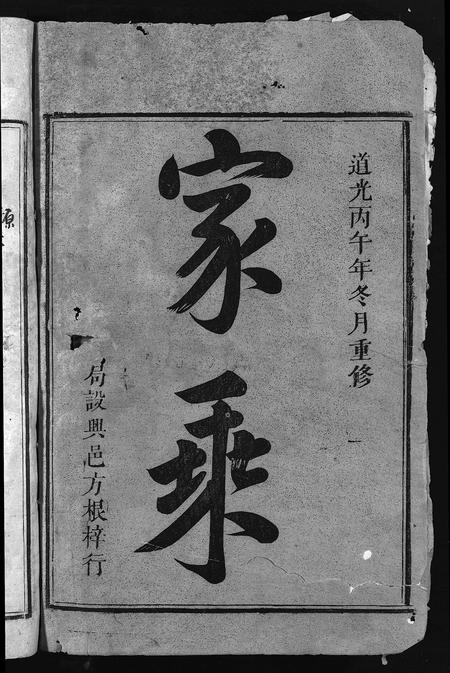 道光丙午年冬月重修
家乘
局設興邑方根梓行
原